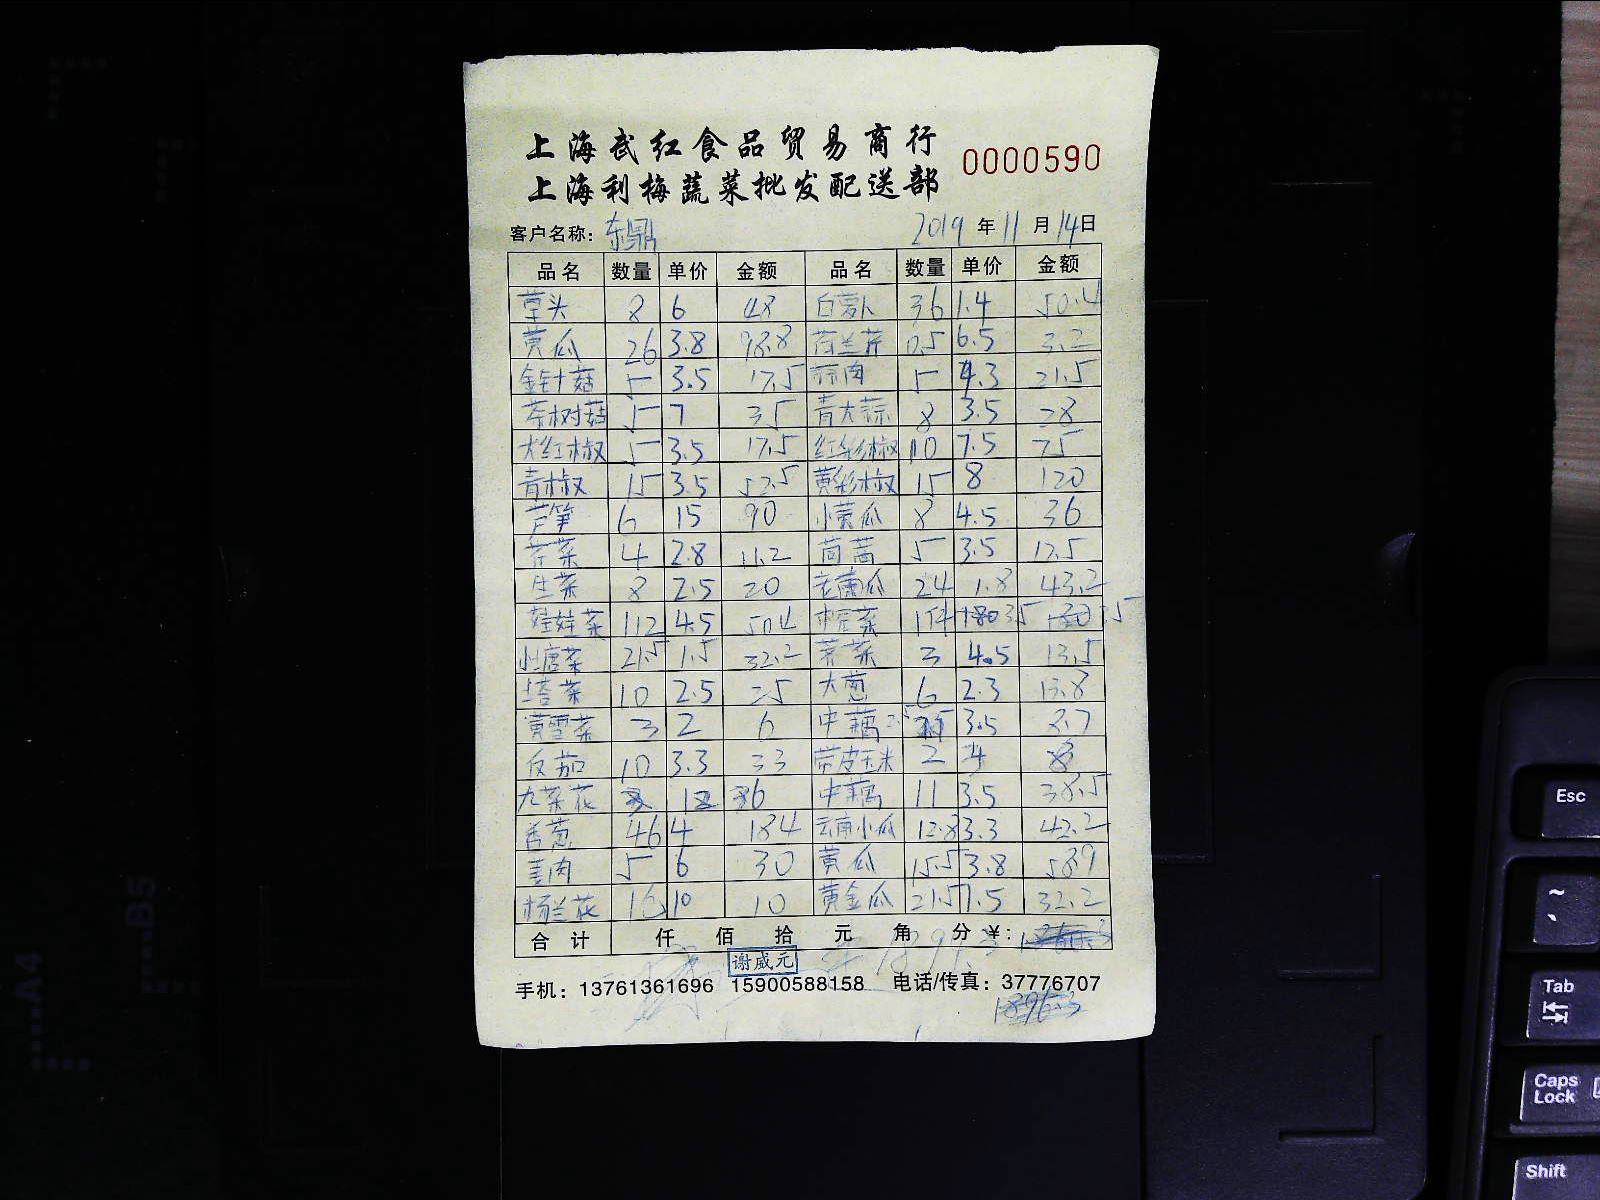 上海武红食品贸易商行
上海利梅蔬菜批发配送部
0000590
客户名称: 东鼎 2019 年 11 月 14 日
品名 数量 单价 金额 品名 数量 单价 金额
草头 8 6 48 白萝卜 36 1.4 50.4
黄瓜 26 3.8 98.8 荷兰芹 0.5 6.5 3.2
金针菇 5 3.5 17.5 蒜肉 5 4.3 21.5
茶树菇 5 7 35 青大蒜 8 3.5 28
大红椒 5 3.5 17.5 红彩椒 10 7.5 75
青椒 15 3.5 52.5 黄彩椒 15 8 120
芦笋 6 15 90 小黄瓜 8 4.5 36
芹菜 4 2.8 11.2 茼蒿 5 3.5 17.5
生菜 8 2.5 20 老南瓜 24 1.8 43.2
娃娃菜 112 4.5 504 菜
小唐菜 21.5 1.5 32.2 荠菜 3 4.5 13.5
塔菜 10 2.5 25 大葱 6 2.3 13.8
黄雪菜 3 2 6 中藕 2.5 3.5 8.7
反茄 10 3.3 33 带皮玉米 2 4 8
九菜花 中藕 11 3.5 38.5
香葱 46 4 184 云南小瓜 12.8 3.3 42.2
姜肉 5 6 30 黄瓜 15.5 3.8 58.9
杨兰花 10 10 黄金瓜 21.5 1.5 32.2
合计 仟 佰 拾 元 角 分 ¥:
谢威元
手机: 13761361696 15900588158 电话/传真: 37776707
1896.3
Esc
~
Tab
Caps Lock
Shift